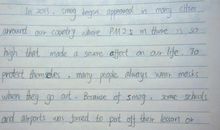 In 2013, smog began appeared in many cities
around our country, where PM2.5 in there is so
high that made a severe affect on our life. To
protect themselves, many people always wear masks
when they go out. Because of smog, some schools
and airports was forced to put off their lessons or